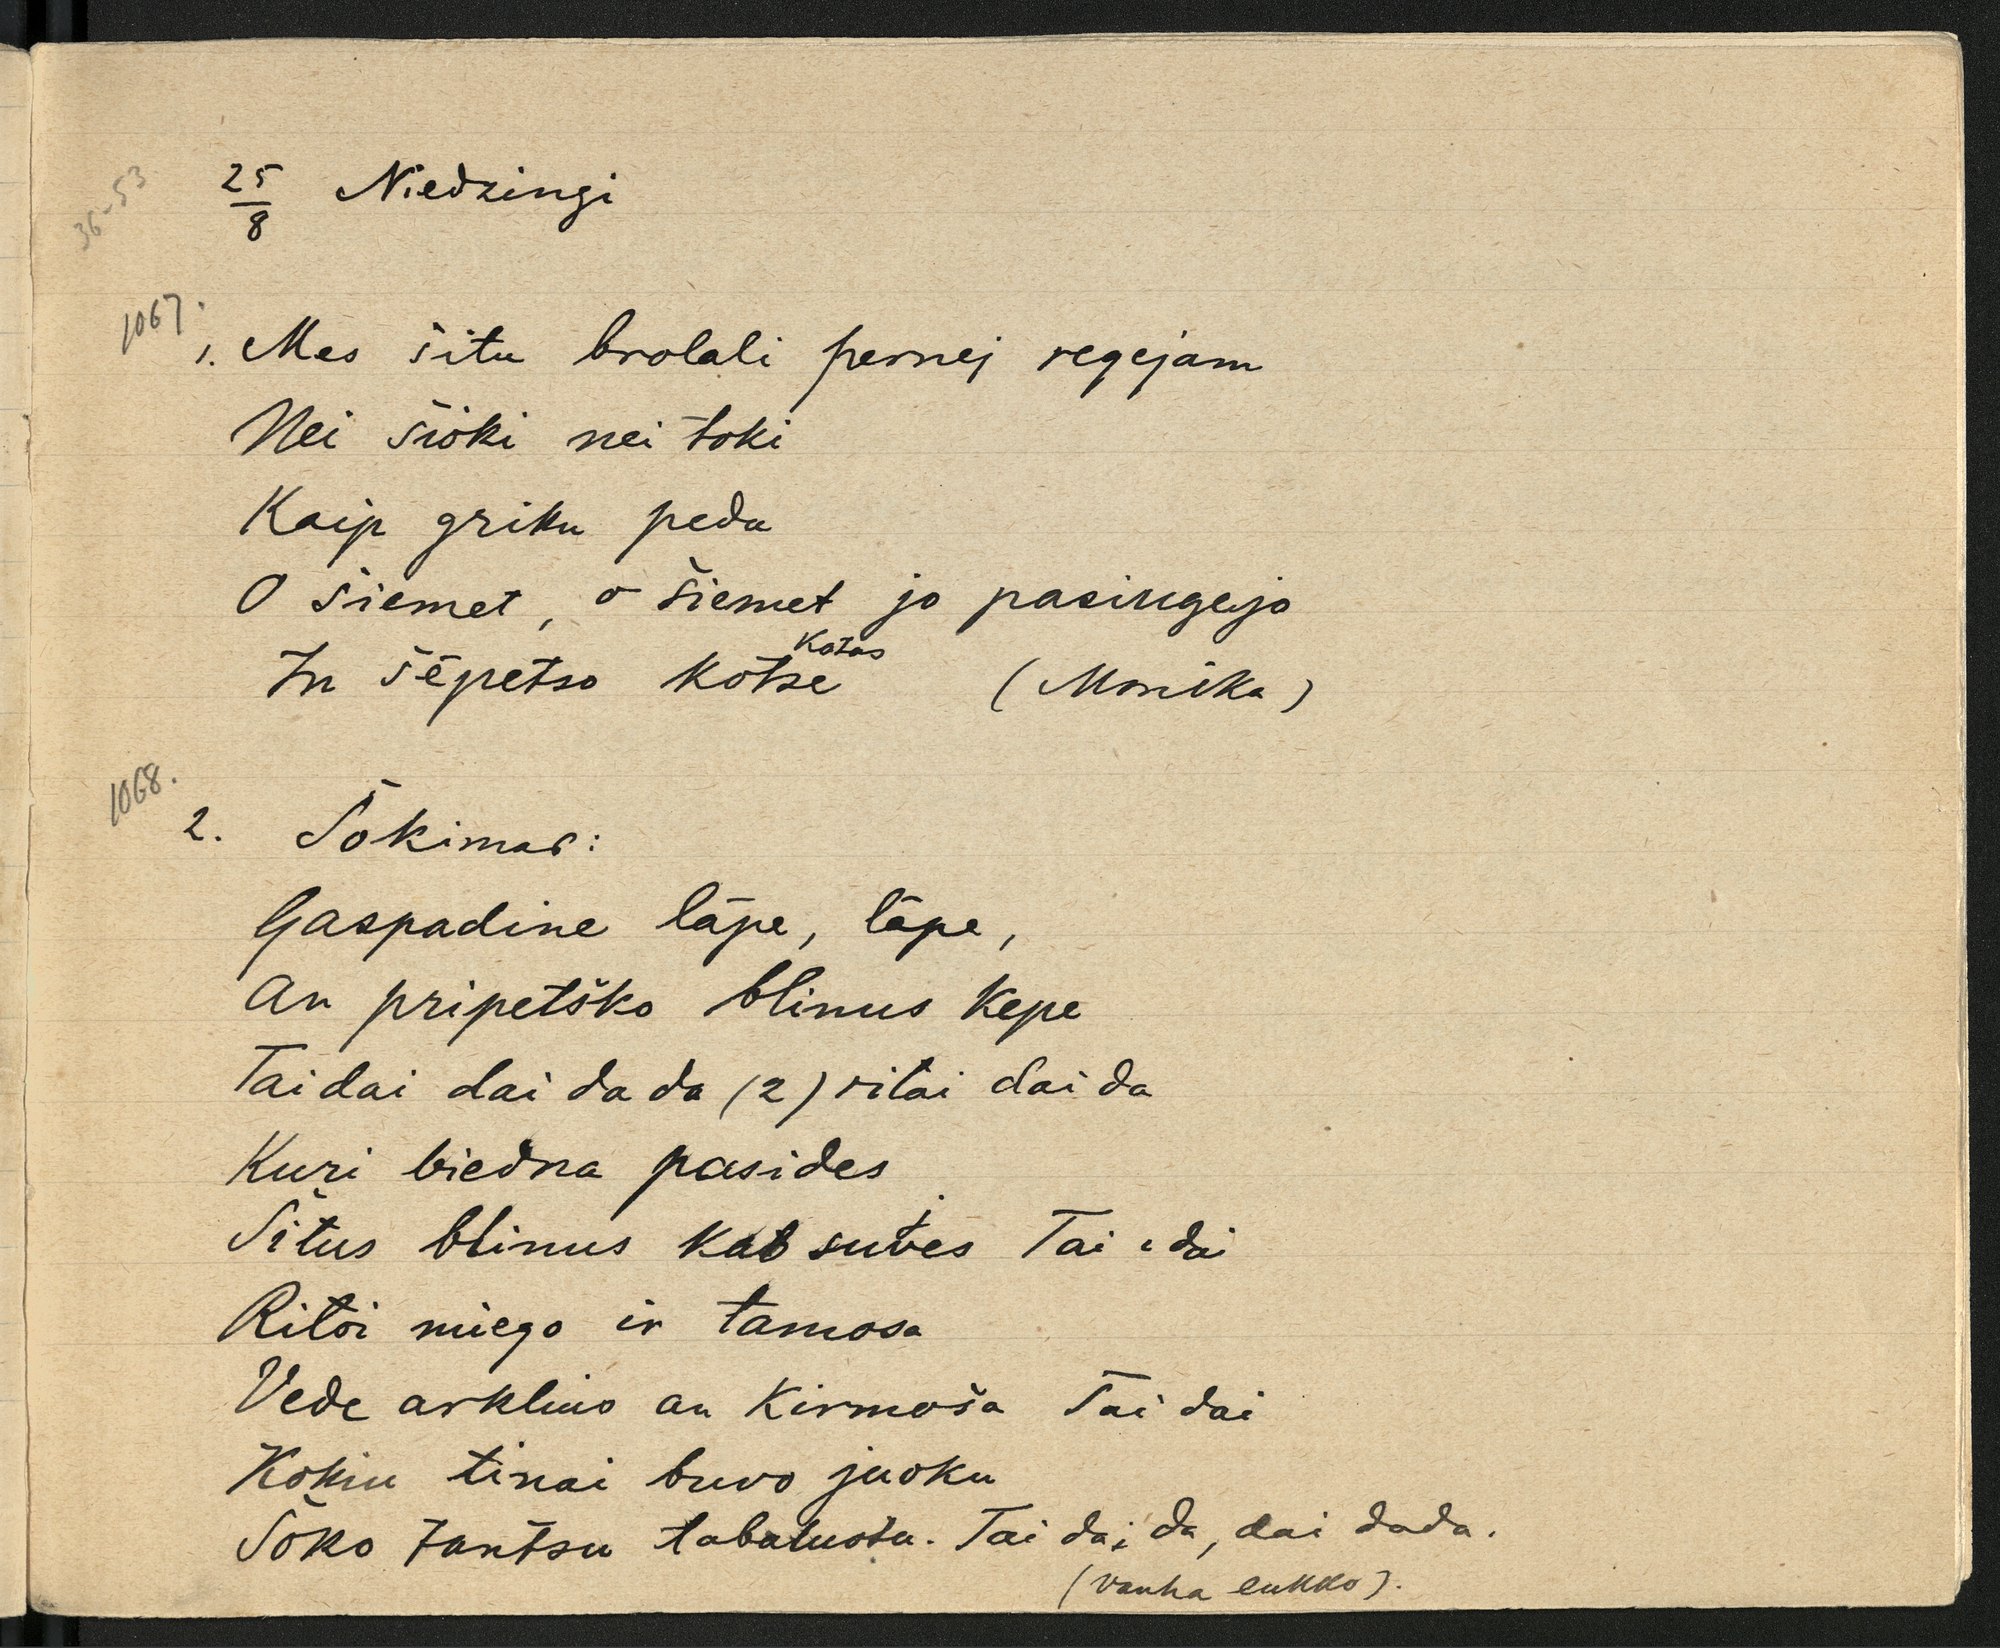 36-53
25/8 Niedzingi
1067.
1. Mes šitu brolali pernej regejam
Nei šioki nei toki
Kaip griku peda
O šiemet, o šiemet jo pasiugejo
In šēpetso kotse
Kotas
(Monika)
1068.
2. Šokimas:
Gaspadine lāpe, lāpe,
an pripetško blinus kepe
Taidai dai da da (2) ritai dai da
Kuri biedna pasides
Šitus blinus kab sutves Tai dai
j
Ritoi miego ir tamosa
Vede arklius an Kirmoša Tai dai
Kokiu tinai buvo juoku
Šoko tantsu tabalustu. Tai dai da, dai dada.
(vanha eukko).